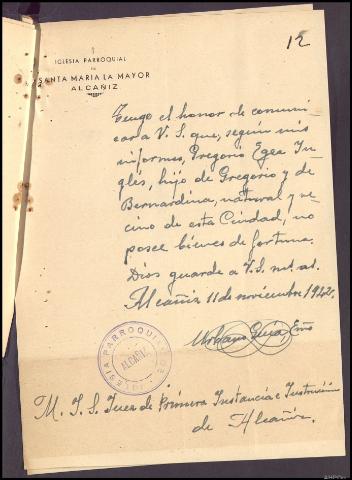 12
IGLESIA PARROQUIAL
DE
SANTA MARIA LA MAYOR
ALCAÑIZ
Tengo el honor de comuni
car a V. S. que, según mis
informes, Gregorio Egea In-
glés, hijo de Gregorio y de
Bernardina, natural y ve-
cino de esta Ciudad, no
posee bienes de fortuna.
Dios guarde a V.S. m. a.
Alcañiz 11 de noviembre/1942.
IGLESIA PARROQUIAL DE
ALCAÑIZ
M. I. S. Juez de Primera Instancia e Instrucción
de Alcañiz.